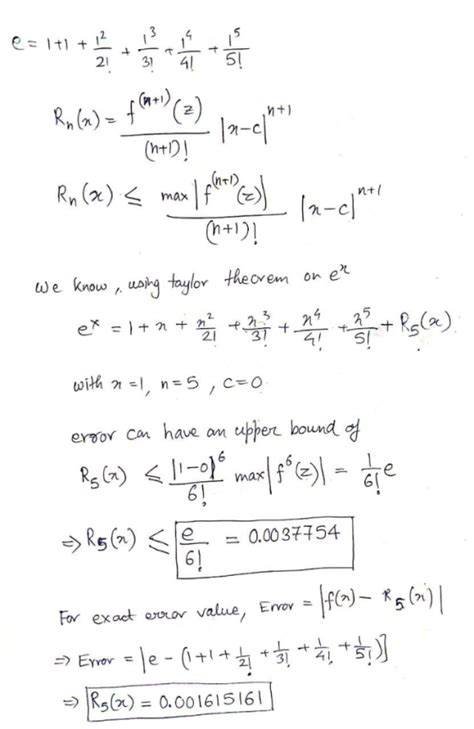 e = 1+1 + 1²/2! + 1³/3! + 1⁴/4! + 1⁵/5!
Rₙ(x) = f⁽ⁿ⁺¹⁾(z)/(n+1)! |x-c|ⁿ⁺¹
Rₙ(x) ≤ max|f⁽ⁿ⁺¹⁾(z)|/(n+1)! |x-c|ⁿ⁺¹
We know, using taylor theorem on eˣ
eˣ = 1 + x + x²/2! + x³/3! + x⁴/4! + x⁵/5! + R₅(x)
with x = 1, n = 5, c = 0
error can have an upper bound of
R₅(x) ≤ |1-0|⁶/6! max|f⁶(z)| = 1/6! e
⇒ R₅(x) ≤ e/6! = 0.0037754
For exact error value, Error = |f(x) - R₅(x)|
⇒ Error = |e - (1+1+1/2!+1/3!+1/4!+1/5!)|
⇒ R₅(x) = 0.001615161